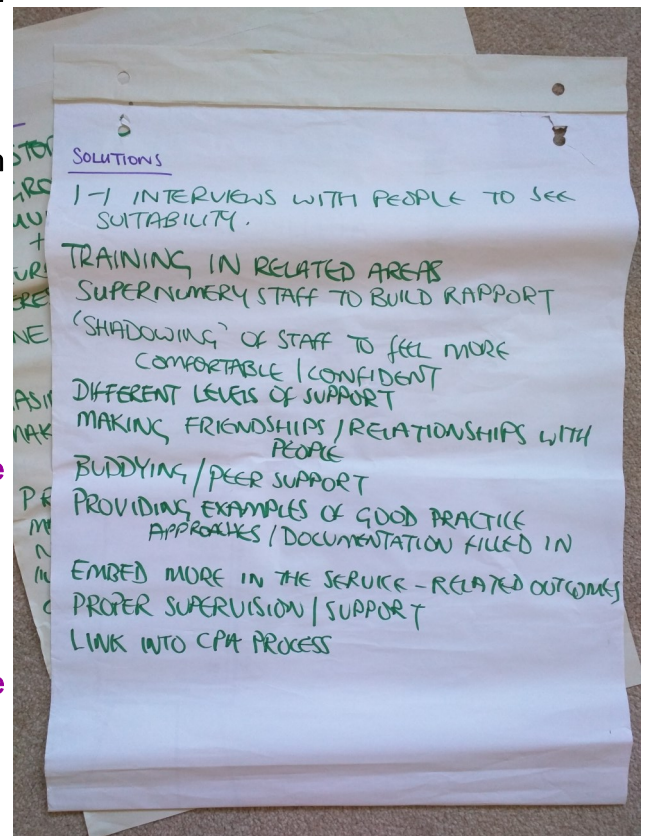 SOLUTIONS
1-1 INTERVIEWS WITH PEOPLE TO SEE
SUITABILITY.
TRAINING IN RELATED AREAS
SUPERNUMERY STAFF TO BUILD RAPPORT
'SHADOWING' OF STAFF TO FEEL MORE
COMFORTABLE / CONFIDENT
DIFFERENT LEVELS OF SUPPORT
MAKING FRIENDSHIPS / RELATIONSHIPS WITH
PEOPLE
BUDDYING / PEER SUPPORT
PROVIDING EXAMPLES OF GOOD PRACTICE
APPROACHES / DOCUMENTATION FILLED IN
EMBED MORE IN THE SERVICE - RELATED OUTCOMES
PROPER SUPERVISION / SUPPORT
LINK INTO CPA PROCESS